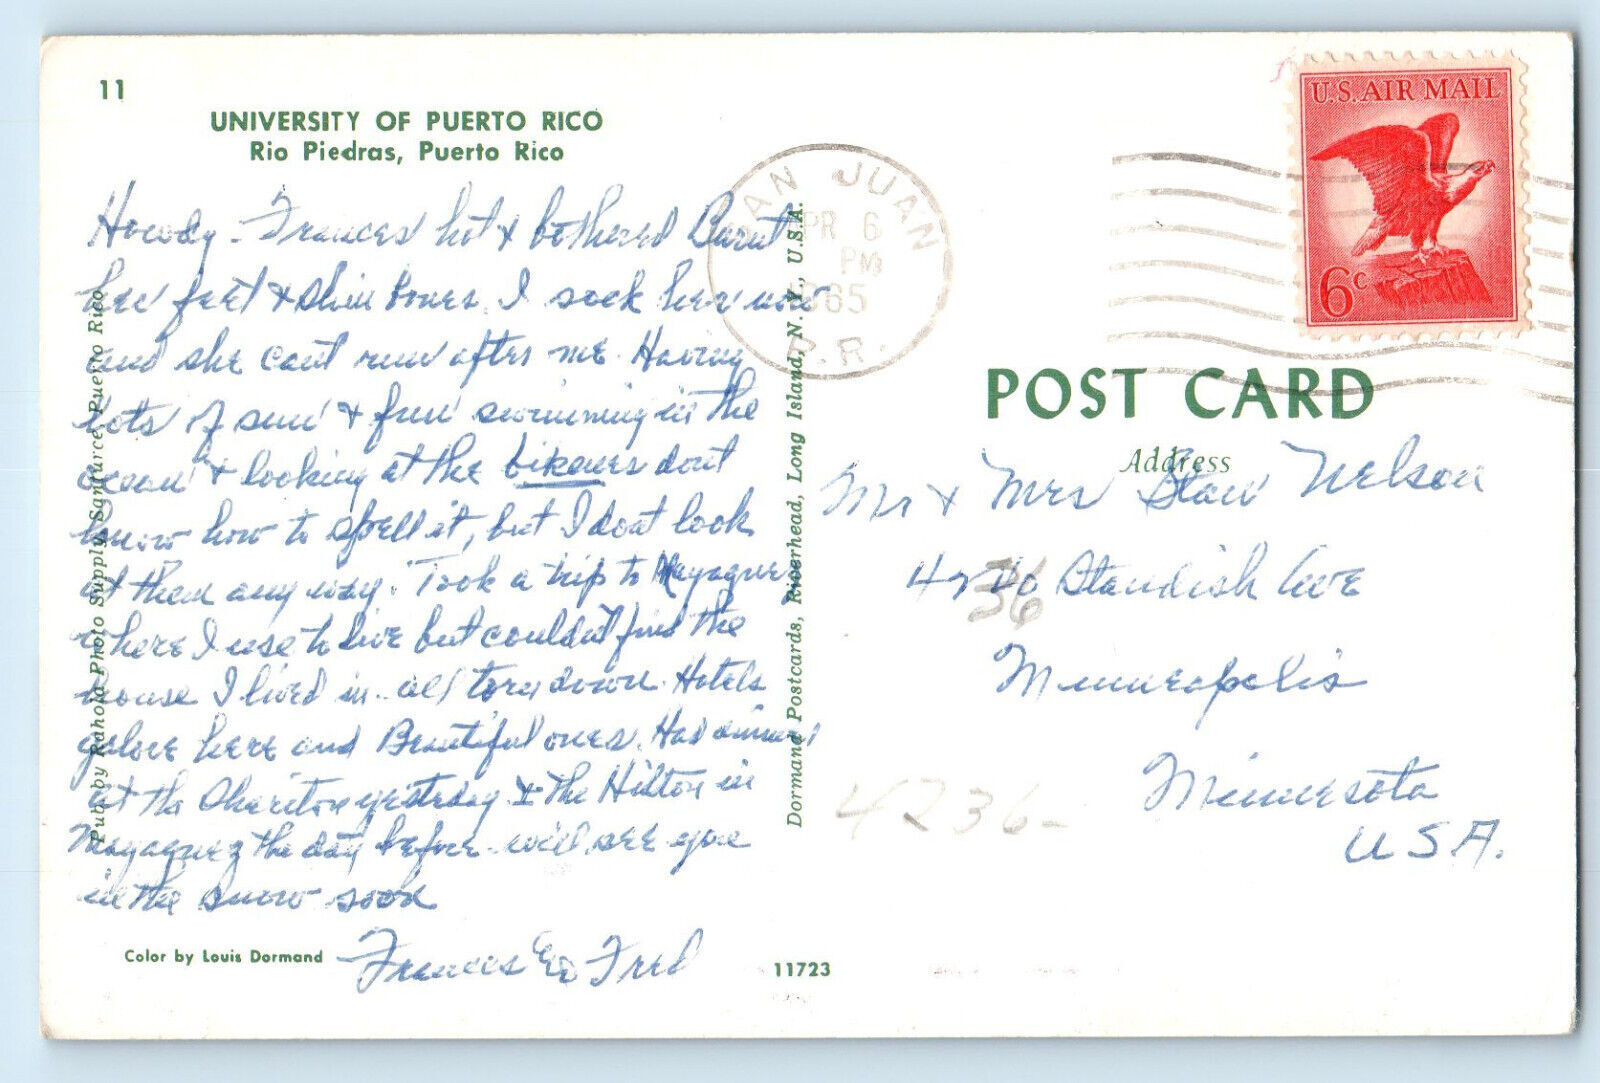 11
UNIVERSITY OF PUERTO RICO
Rio Piedras, Puerto Rico
Howdy - Frances hot & bothered Burnt
her feet & shin bones. I sock her now
and she cant run after me. Having
lots of sun & fun swimming in the
ocean & looking at the bikenes dont
know how to spell it, but I dont look
at them any way. Took a trip to Mayaguez
where I use to live but couldnt find the
house I lived in - all torn down. Hotels
galore here and Beautiful ones. Had dinner
at the yesterday & the Hilton in
Mayaguez the day before - will see you
in the snow soon
Frances & Fred
Color by Louis Dormand
11723
Pub. by Rahola Photo Supply, Santurce, Puerto Rico
Dormand Postcards, Riverhead, Long Island, N. Y., U.S.A.
SAN JUAN
APR 6
PM
1965
P.R.
U.S. AIR MAIL
6c
POST CARD
Address
Mr & Mrs Stan Nelson
36 Standish Ave
Minneapolis
Minnesota
USA.
4236-